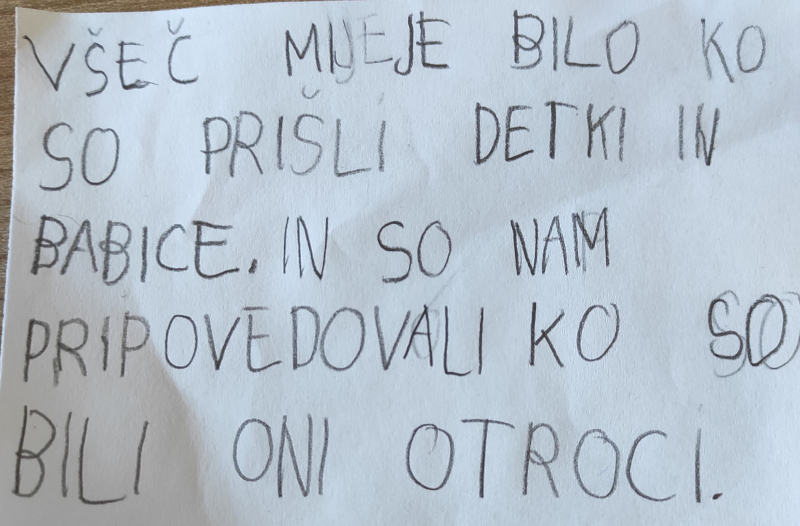 VŠEČ MI JE BILO KO
SO PRIŠLI DETKI IN
BABICE. IN SO NAM
PRIPOVEDOVALI KO SO
BILI ONI OTROCI.